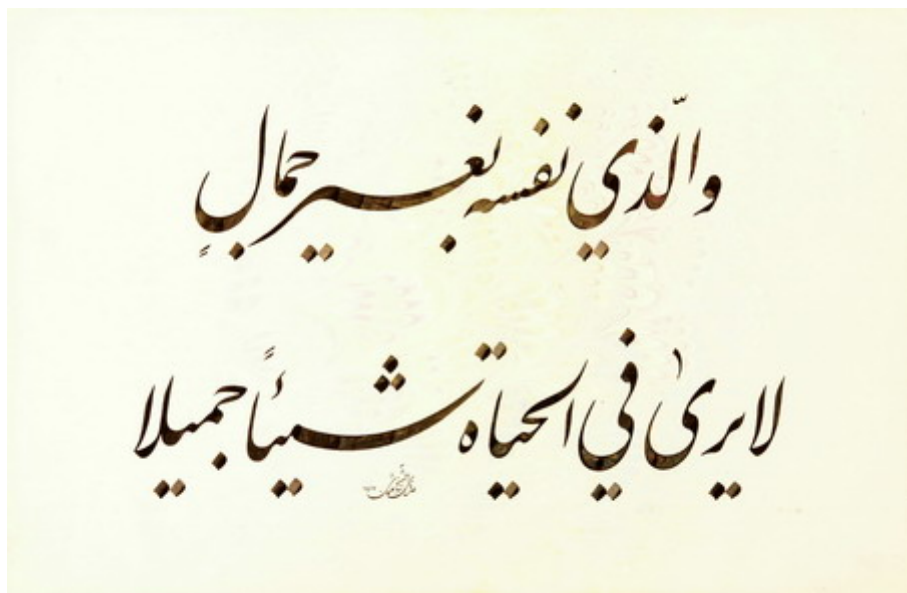 والّذي نفسه بغير جمالٍ
لا يرىٰ في الحياة شيئاً جميلا